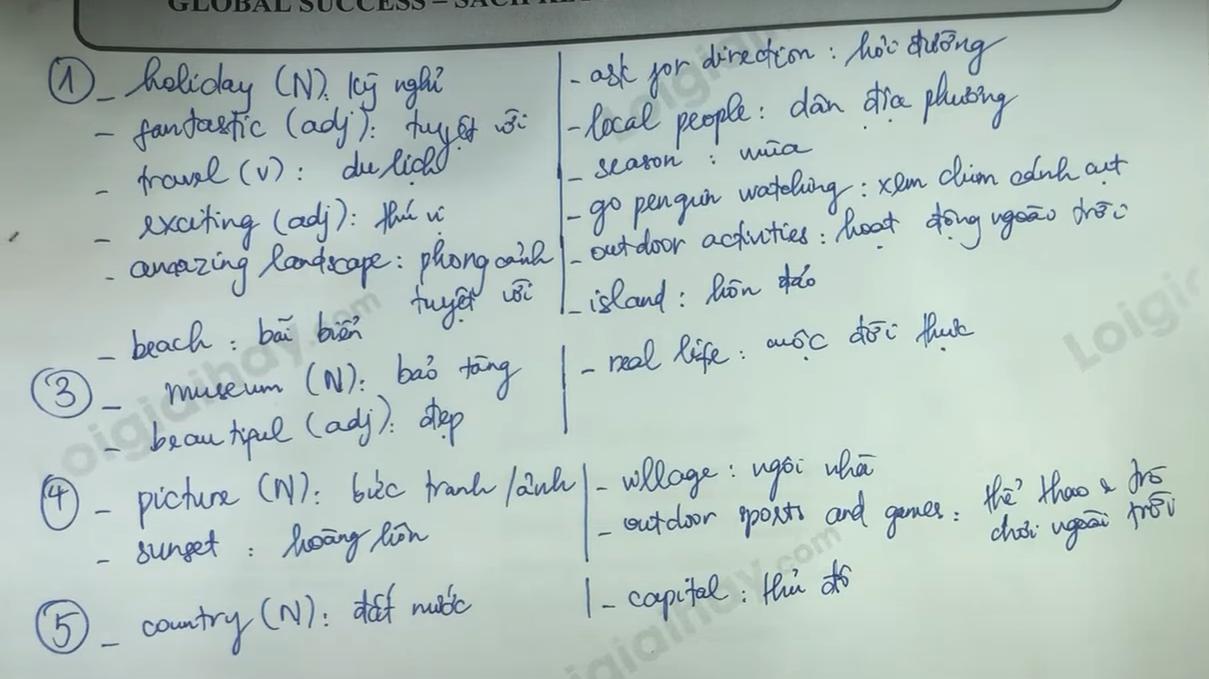 GLOBAL SUCCESS – SÁCH
① - holiday (N): kỳ nghỉ
- fantastic (adj): tuyệt vời
- travel (v): du lịch
- exciting (adj): thú vị
- amazing landscape: phong cảnh
tuyệt vời
- beach: bãi biển
- ask for direction: hỏi đường
- local people: dân địa phương
- season: mùa
- go penguin watching: xem chim cánh cụt
- outdoor activities: hoạt động ngoài trời
- island: hòn đảo
③ - museum (N): bảo tàng
- beautiful (adj): đẹp
- real life: cuộc đời thực
④ - picture (N): bức tranh/ảnh
- sunset: hoàng hôn
- village: ngôi nhà
- outdoor sports and games: thể thao & trò
chơi ngoài trời
⑤ - country (N): đất nước
- capital: thủ đô
Loigiaihay.com
Loigiaihay.com